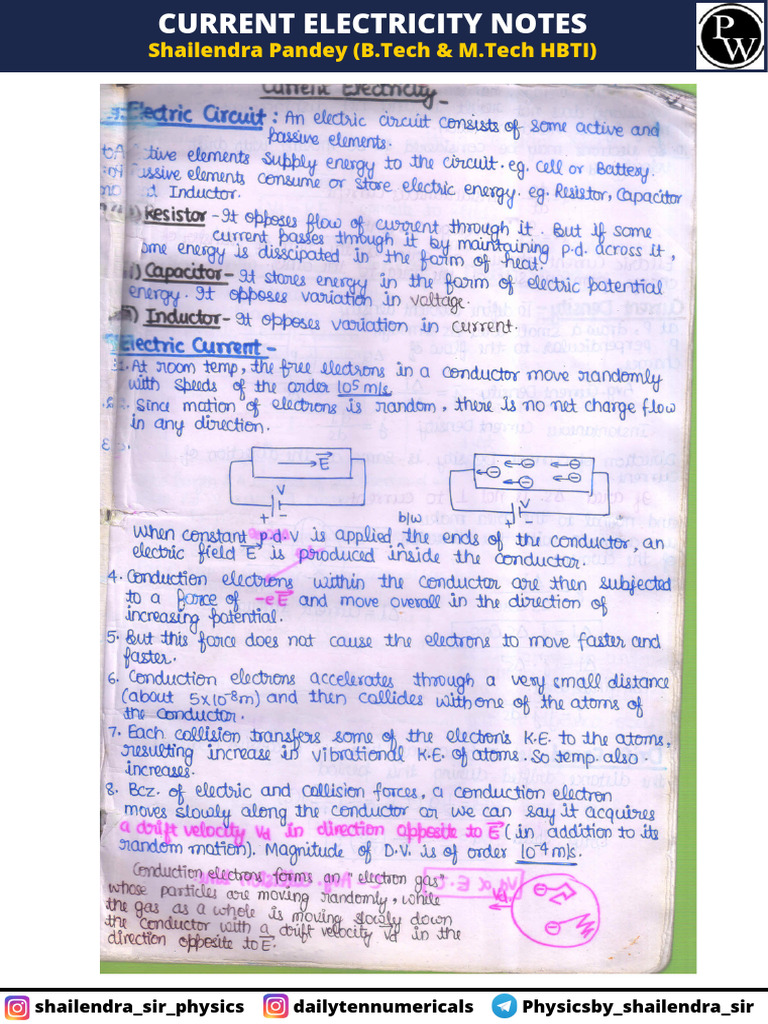 CURRENT ELECTRICITY NOTES
Shailendra Pandey (B.Tech & M.Tech HBTI)
P
W
Current Electricity -
Electric Circuit : An electric circuit consists of some active and
passive elements.
Active elements supply energy to the circuit. eg. Cell or Battery.
Passive elements consume or store electric energy. eg. Resistor, Capacitor
Inductor.
i) Resistor - It opposes flow of current through it. But if some
current passes through it by maintaining p.d. across it,
some energy is disscipated in the form of heat.
ii) Capacitor - It stores energy in the form of electric potential
energy. It opposes variation in voltage.
iii) Inductor - It opposes variation in current.
Electric Current -
1. At room temp, the free electrons in a conductor move randomly
with speeds of the order 10⁵ m/s.
2. Since motion of electrons is random, there is no net charge flow
in any direction.
3.
E
V
+ -
V
+ -
b/w
When constant p.d. V is applied the ends of the conductor, an
electric field E is produced inside the conductor.
4. Conduction electrons within the conductor are then subjected
to a force of -eE and move overall in the direction of
increasing potential.
5. But this force does not cause the electrons to move faster and
faster.
6. Conduction electrons accelerates through a very small distance
(about 5x10⁻⁸m) and then collides with one of the atoms of
the conductor.
7. Each collision transfers some of the electron's K.E. to the atoms,
resulting increase in vibrational K.E. of atoms. So temp. also
increases.
8. Bcz. of electric and collision forces, a conduction electron
moves slowly along the conductor or we can say it acquires
a drift velocity Vd in direction opposite to E (in addition to its
random motion). Magnitude of D.V. is of order 10⁻⁴ m/s.
Conduction electrons forms an "electron gas"
whose particles are moving randomly, while
the gas as a whole is moving slowly down
the conductor with a drift velocity Vd in the
direction opposite to E.
Vd
shailendra_sir_physics dailytennumericals Physicsby_shailendra_sir